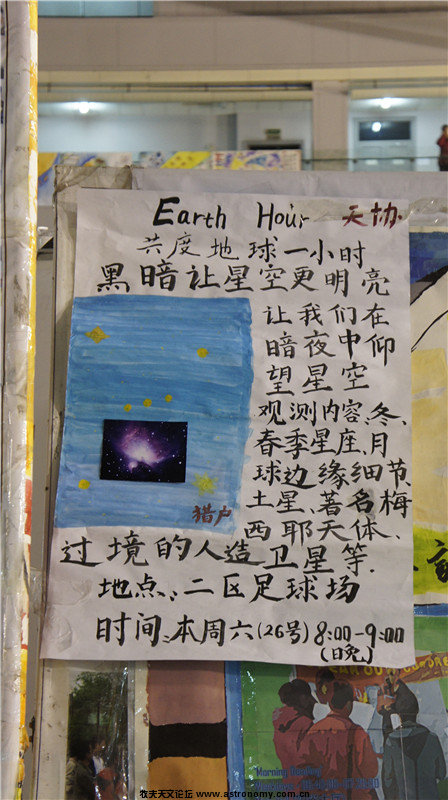 Earth Hour 天协
共度地球一小时
黑暗让星空更明亮
让我们在
暗夜中仰
望星空
观测内容:冬、
春季星座、月
球边缘细节、
土星、著名梅
西耶天体、
猎户
过境的人造卫星等.
地点:二区足球场
时间:本周六(26号)8:00-9:00
(日免)
牧夫天文论坛 www.astronomy.com.cn